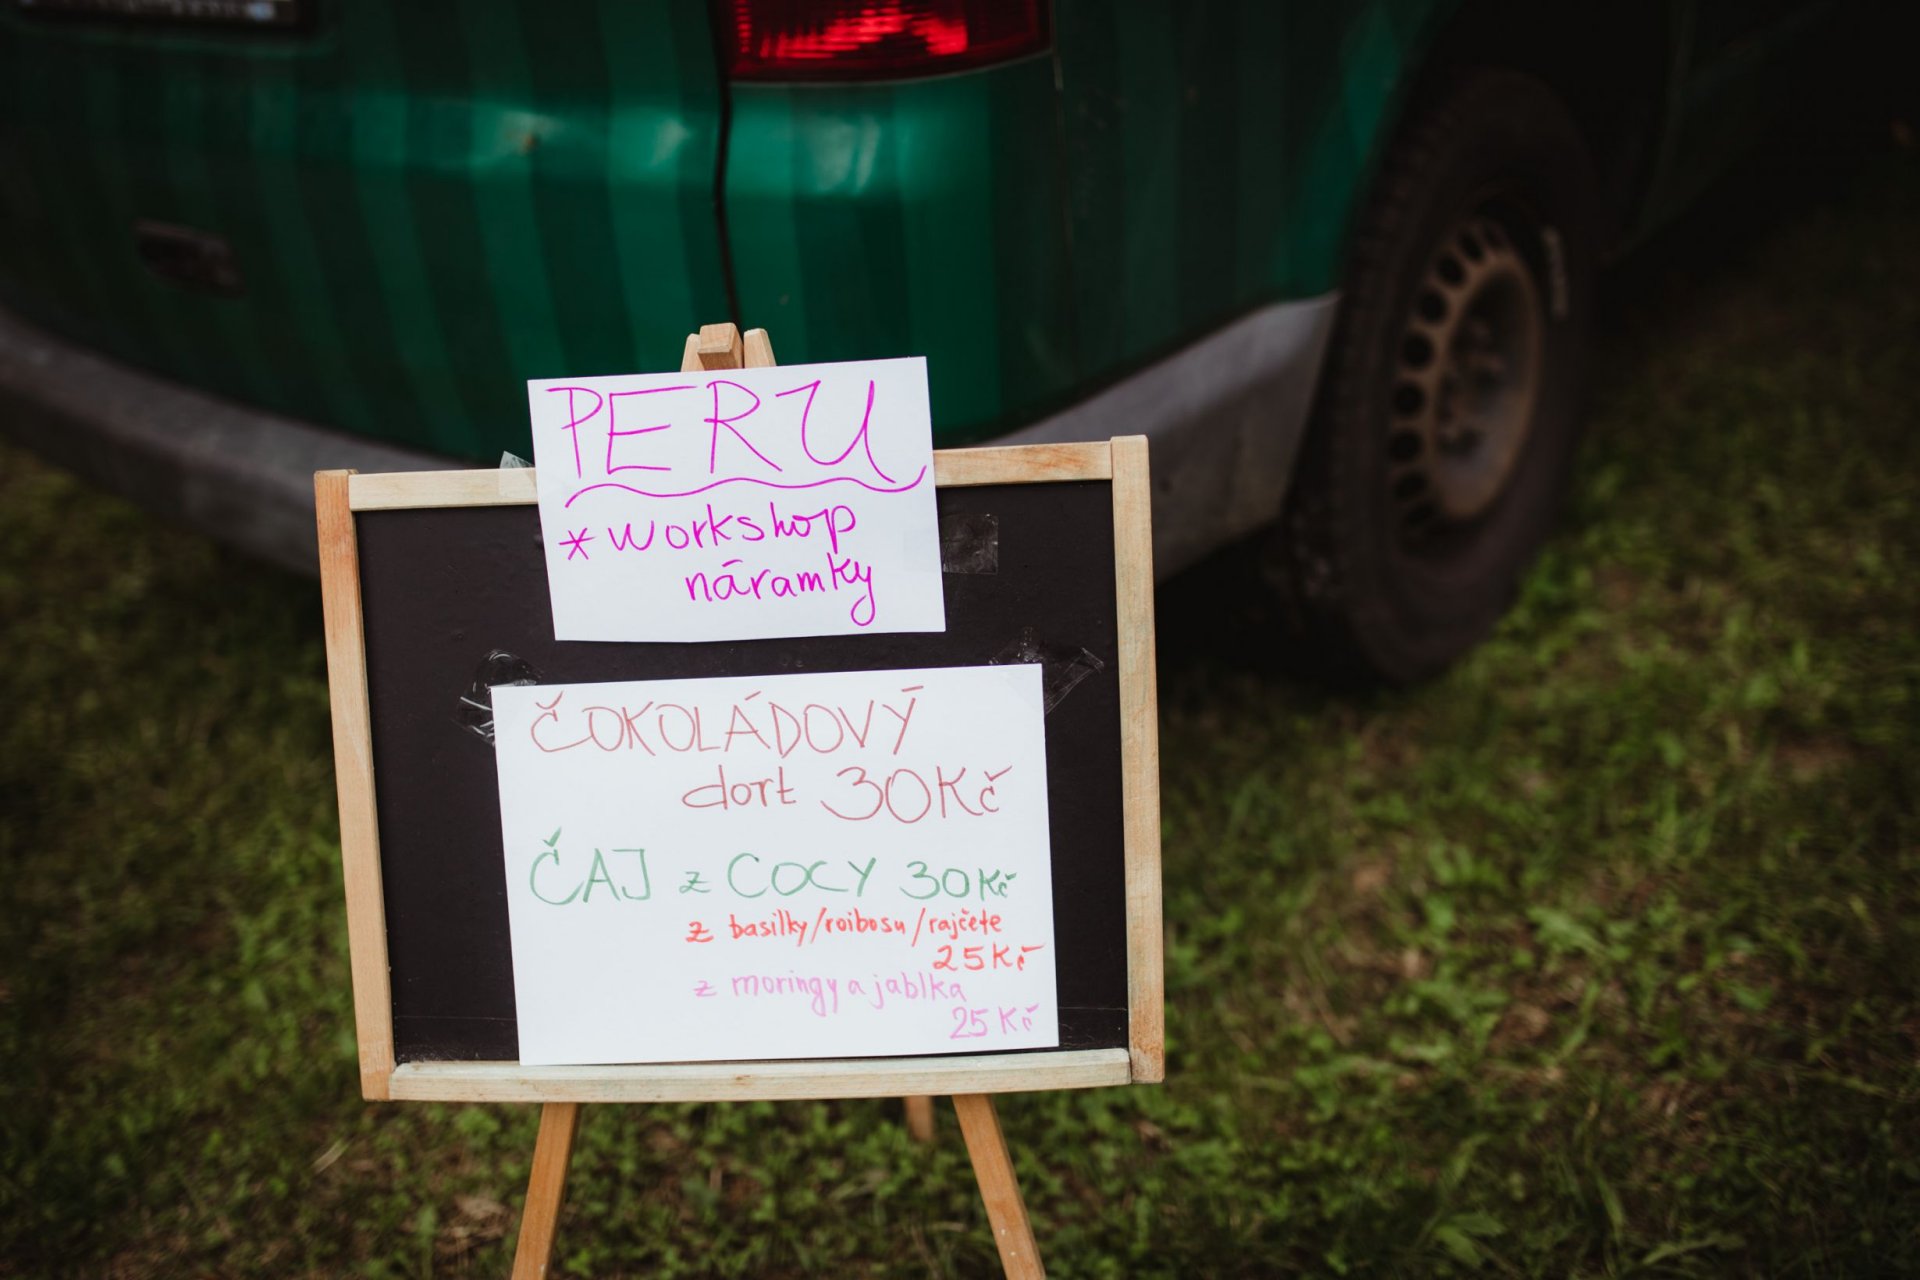 PERU
* workshop
náramky
ČOKOLÁDOVÝ
dort 30Kč
ČAJ z COCY 30Kč
z basilky/roibosu/rajčete
25Kč
z moringy a jablka
25Kč